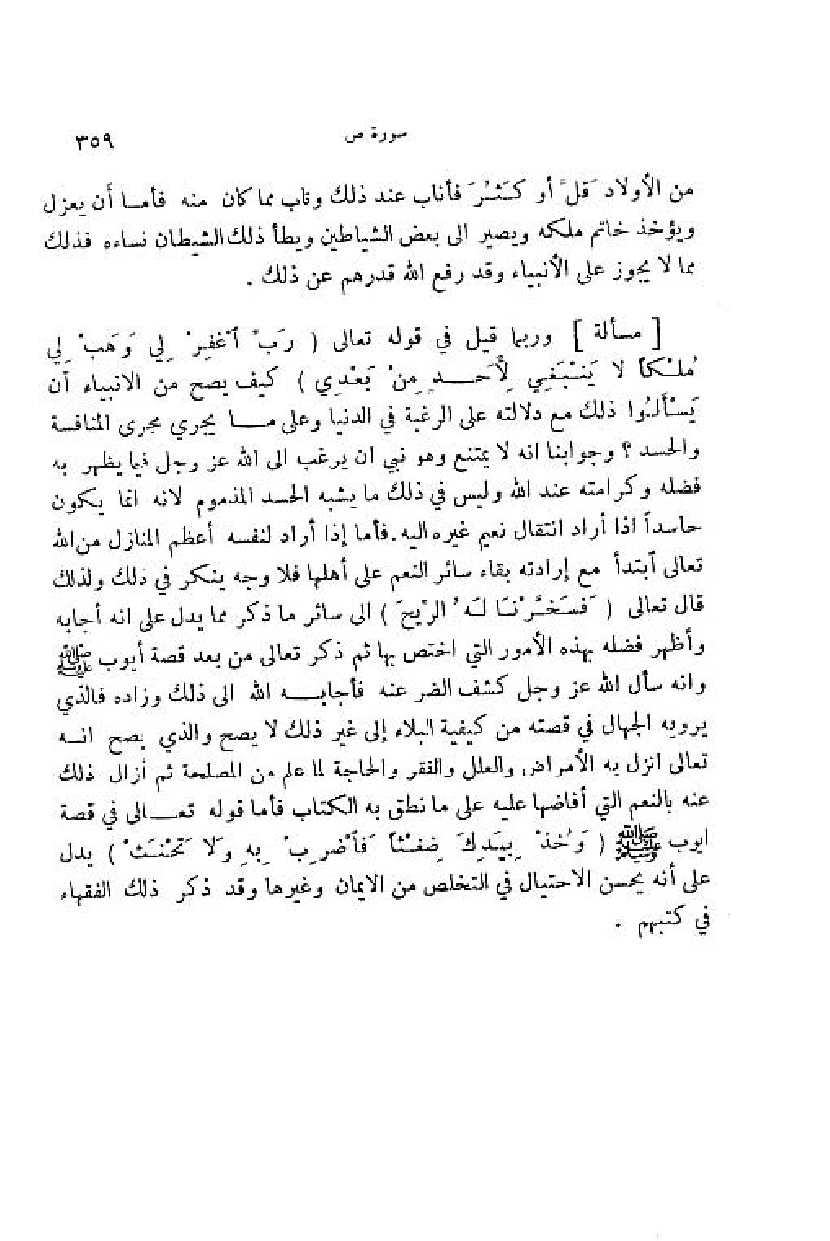 سورة ص
٣٥٩
من الأولاد قلّ أو كَثُرَ فأناب عند ذلك وتاب مما كان منه فأما أن يعزل
ويؤخذ خاتم ملكه ويصير الى بعض الشياطين ويطأ ذلك الشيطان نساءه فذلك
مما لا يجوز على الأنبياء وقد رفع الله قدرهم عن ذلك .
[ مسألة ] وربما قيل في قوله تعالى ( رَبّ ٱغْفِرْ لِي وَهَبْ لِي
مُلْكاً لا يَنْبَغِي لِأَحَدٍ مِنْ بَعْدِي ) كيف يصح من الانبياء أن
يَسْأَلُوا ذلك مع دلالته على الرغبة في الدنيا وعلى ما يجري مجرى المنافسة
والحسد ؟ وجوابنا انه لا يمتنع وهو نبي ان يرغب الى الله عز وجل فيما يظهر به
فضله وكرامته عند الله وليس في ذلك ما يشبه الحسد المذموم لانه انما يكون
حاسداً اذا أراد انتقال نعيم غيره اليه. فأما إذا أراد لنفسه أعظم المنازل من الله
تعالى أبتدأ مع إرادته بقاء سائر النعم على أهلها فلا وجه ينكر في ذلك ولذلك
قال تعالى ( فَسَخَّرْنَا لَهُ الرّيحَ ) الى سائر ما ذكر مما يدل على انه أجابه
وأظهر فضله بهذه الأمور التي اختص بها ثم ذكر تعالى من بعد قصة أيوب ﷺ
وانه سأل الله عز وجل كشف الضر عنه فأجابه الله الى ذلك وزاده فالذي
يرويه الجهال في قصته من كيفية البلاء إلى غير ذلك لا يصح والذي يصح انه
تعالى انزل به الأمراض والعلل والفقر والحاجة لما علم من المصلحة ثم أزال ذلك
عنه بالنعم التي أفاضها عليه على ما نطق به الكتاب فأما قوله تعالى في قصة
ايوب ﷺ ( وَخُذْ بِيَدِكَ ضِغْثاً فَأضْرِبْ بِهِ وَلَا تَحْنَثْ ) يدل
على أنه يحسن الاحتيال في التخلص من الايمان وغيرها وقد ذكر ذلك الفقهاء
في كتبهم .